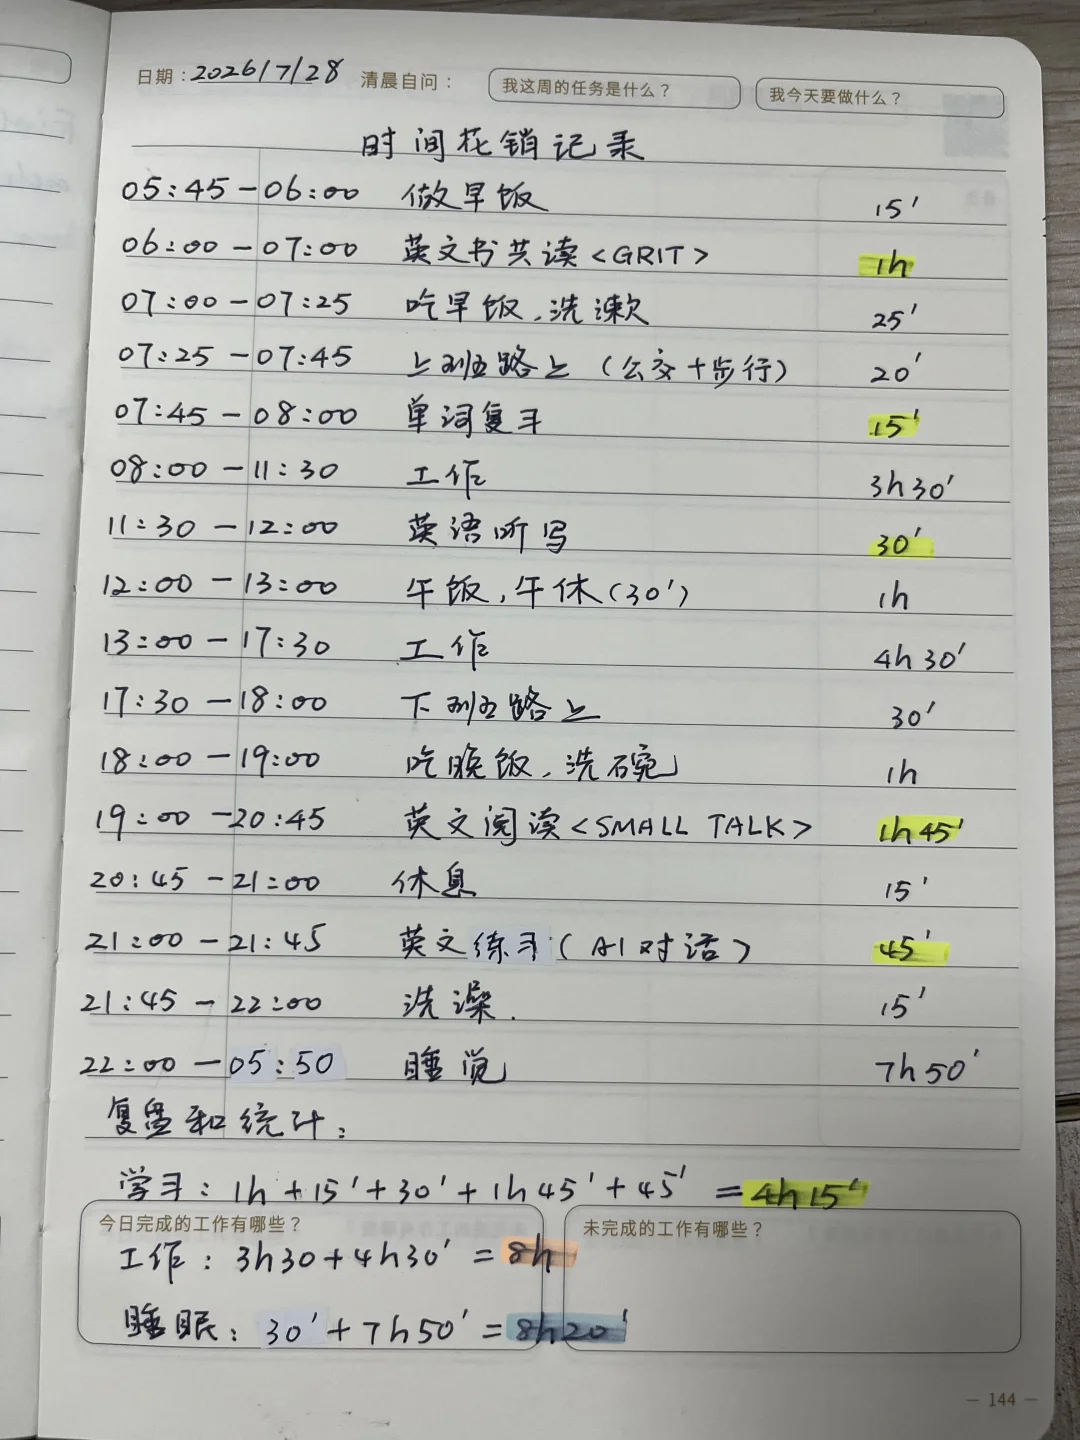 日期：2026/7/28 清晨自问： 我这周的任务是什么？ 我今天要做什么？
时间花销记录
05:45-06:00 做早饭 15'
06:00-07:00 英文书共读<GRIT> 1h
07:00-07:25 吃早饭,洗漱 25'
07:25-07:45 上班路上（公交+步行） 20'
07:45-08:00 单词复习 15'
08:00-11:30 工作 3h30'
11:30-12:00 英语听写 30'
12:00-13:00 午饭,午休(30') 1h
13:00-17:30 工作 4h30'
17:30-18:00 下班路上 30'
18:00-19:00 吃晚饭,洗碗 1h
19:00-20:45 英文阅读<SMALL TALK> 1h45'
20:45-21:00 休息 15'
21:00-21:45 英文练习(AI对话) 45'
21:45-22:00 洗澡. 15'
22:00-05:50 睡觉 7h50'
复盘和统计：
学习：1h+15'+30'+1h45'+45'=4h15'
今日完成的工作有哪些？ 未完成的工作有哪些？
工作：3h30+4h30'=8h
睡眠：30'+7h50'=8h20'
— 144 —